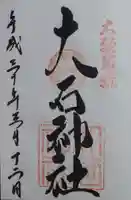 大石神社
平成三十年三月十二日